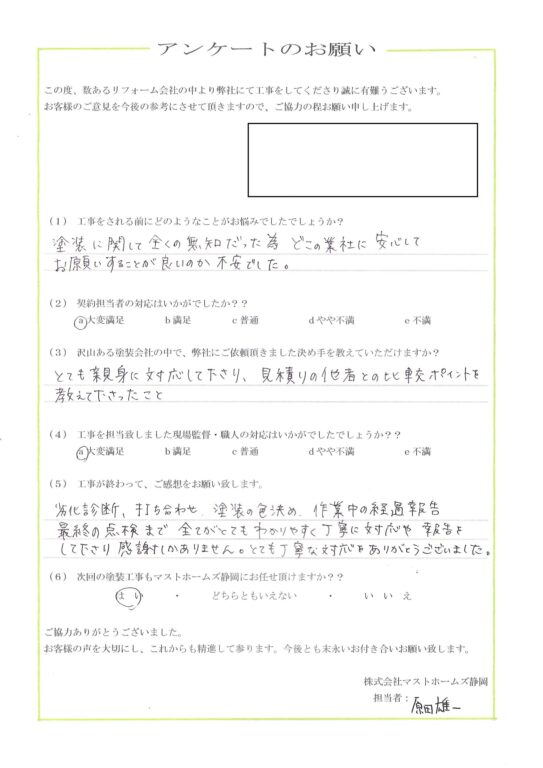 アンケートのお願い
この度、数あるリフォーム会社の中より弊社にて工事をしてくださり誠に有難うございます。
お客様のご意見を今後の参考にさせて頂きますので、ご協力の程お願い申し上げます。
(1) 工事をされる前にどのようなことがお悩みでしたでしょうか?
塗装に関して全くの無知だった為 どこの業社に安心して
お願いすることが良いのか不安でした。
(2) 契約担当者の対応はいかがでしたか??
a大変満足 b満足 c普通 dやや不満 e不満
(3) 沢山ある塗装会社の中で、弊社にご依頼頂きました決め手を教えていただけますか?
とても親身に対応して下さり、見積りの他者との比較ポイントを
教えて下さったこと
(4) 工事を担当致しました現場監督・職人の対応はいかがでしたでしょうか?
a大変満足 b満足 c普通 dやや不満 e不満
(5) 工事が終わって、ご感想をお願い致します。
劣化診断、打ち合わせ、塗装の色決め、作業中の経過報告
最終の点検まで 全てがとてもわかりやすく丁寧に対応や報告を
して下さり感謝しかありません。とても丁寧な対応をありがとうございました。
(6) 次回の塗装工事もマストホームズ静岡にお任せ頂けますか??
はい ・ どちらともいえない ・ いいえ
ご協力ありがとうございました。
お客様の声を大切にし、これからも精進して参ります。今後とも末永いお付き合いお願い致します。
株式会社マストホームズ静岡
担当者: 原田雄一